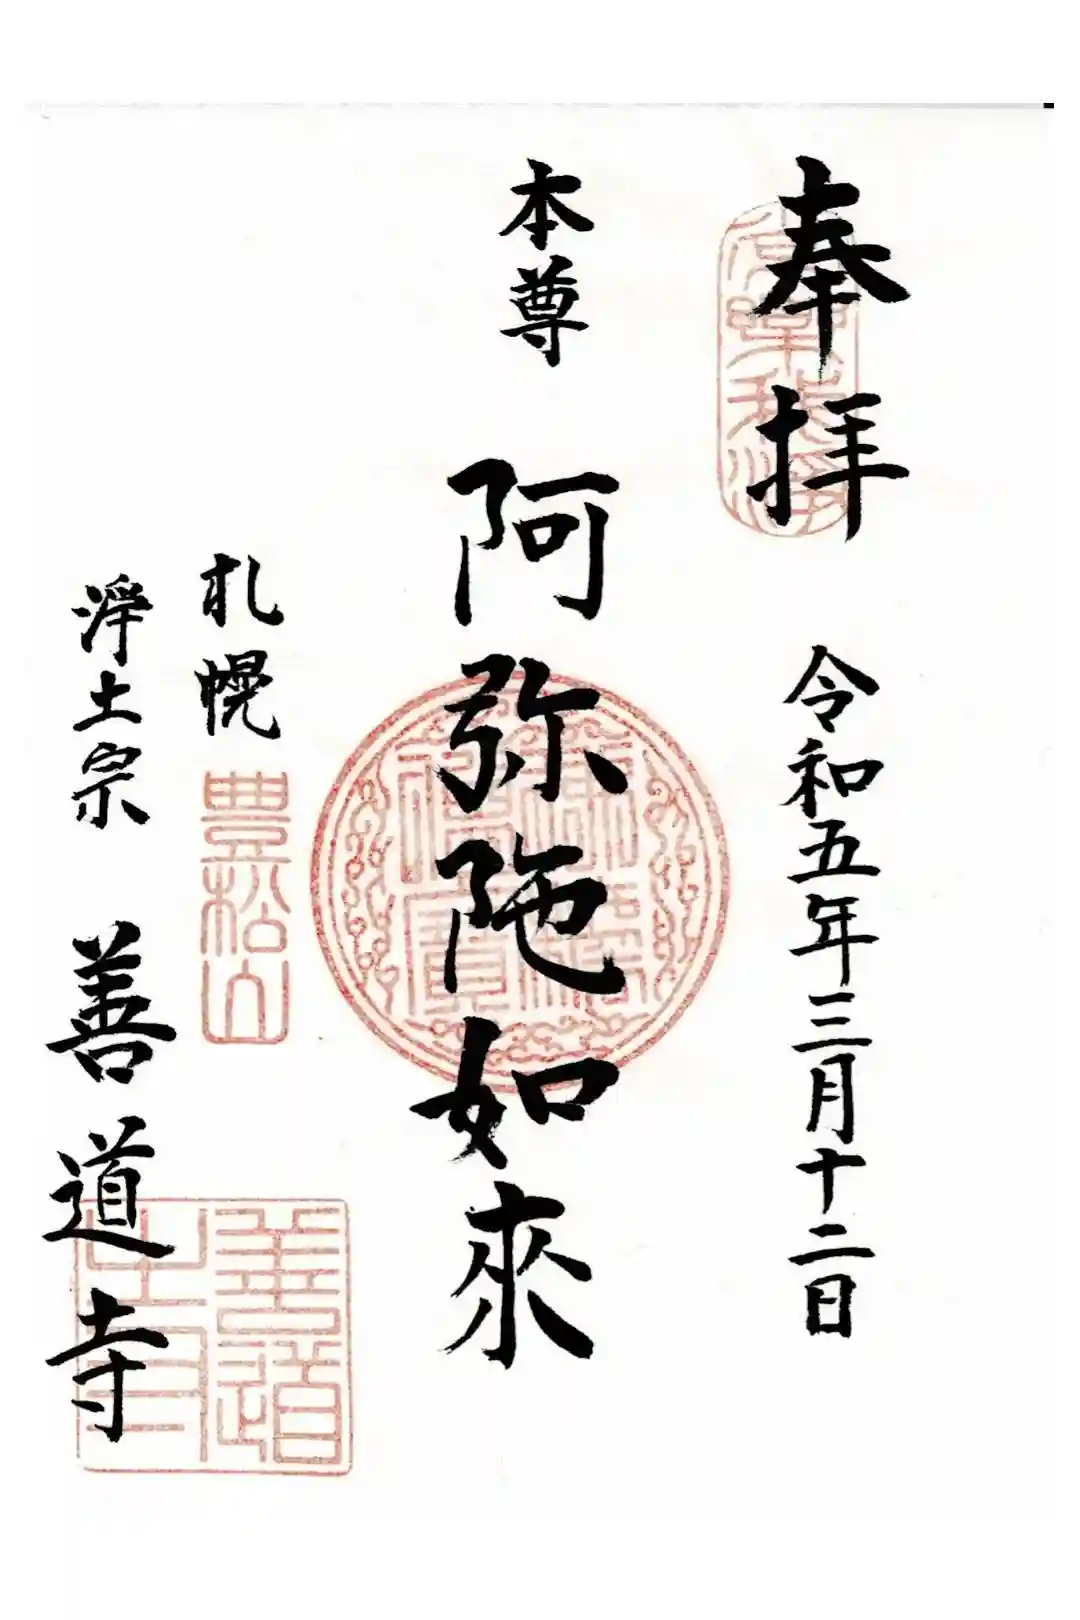 奉拝
令和五年三月十二日
本尊
阿弥陀如來
札幌
豊松山
浄土宗 善道寺
善道
寺印